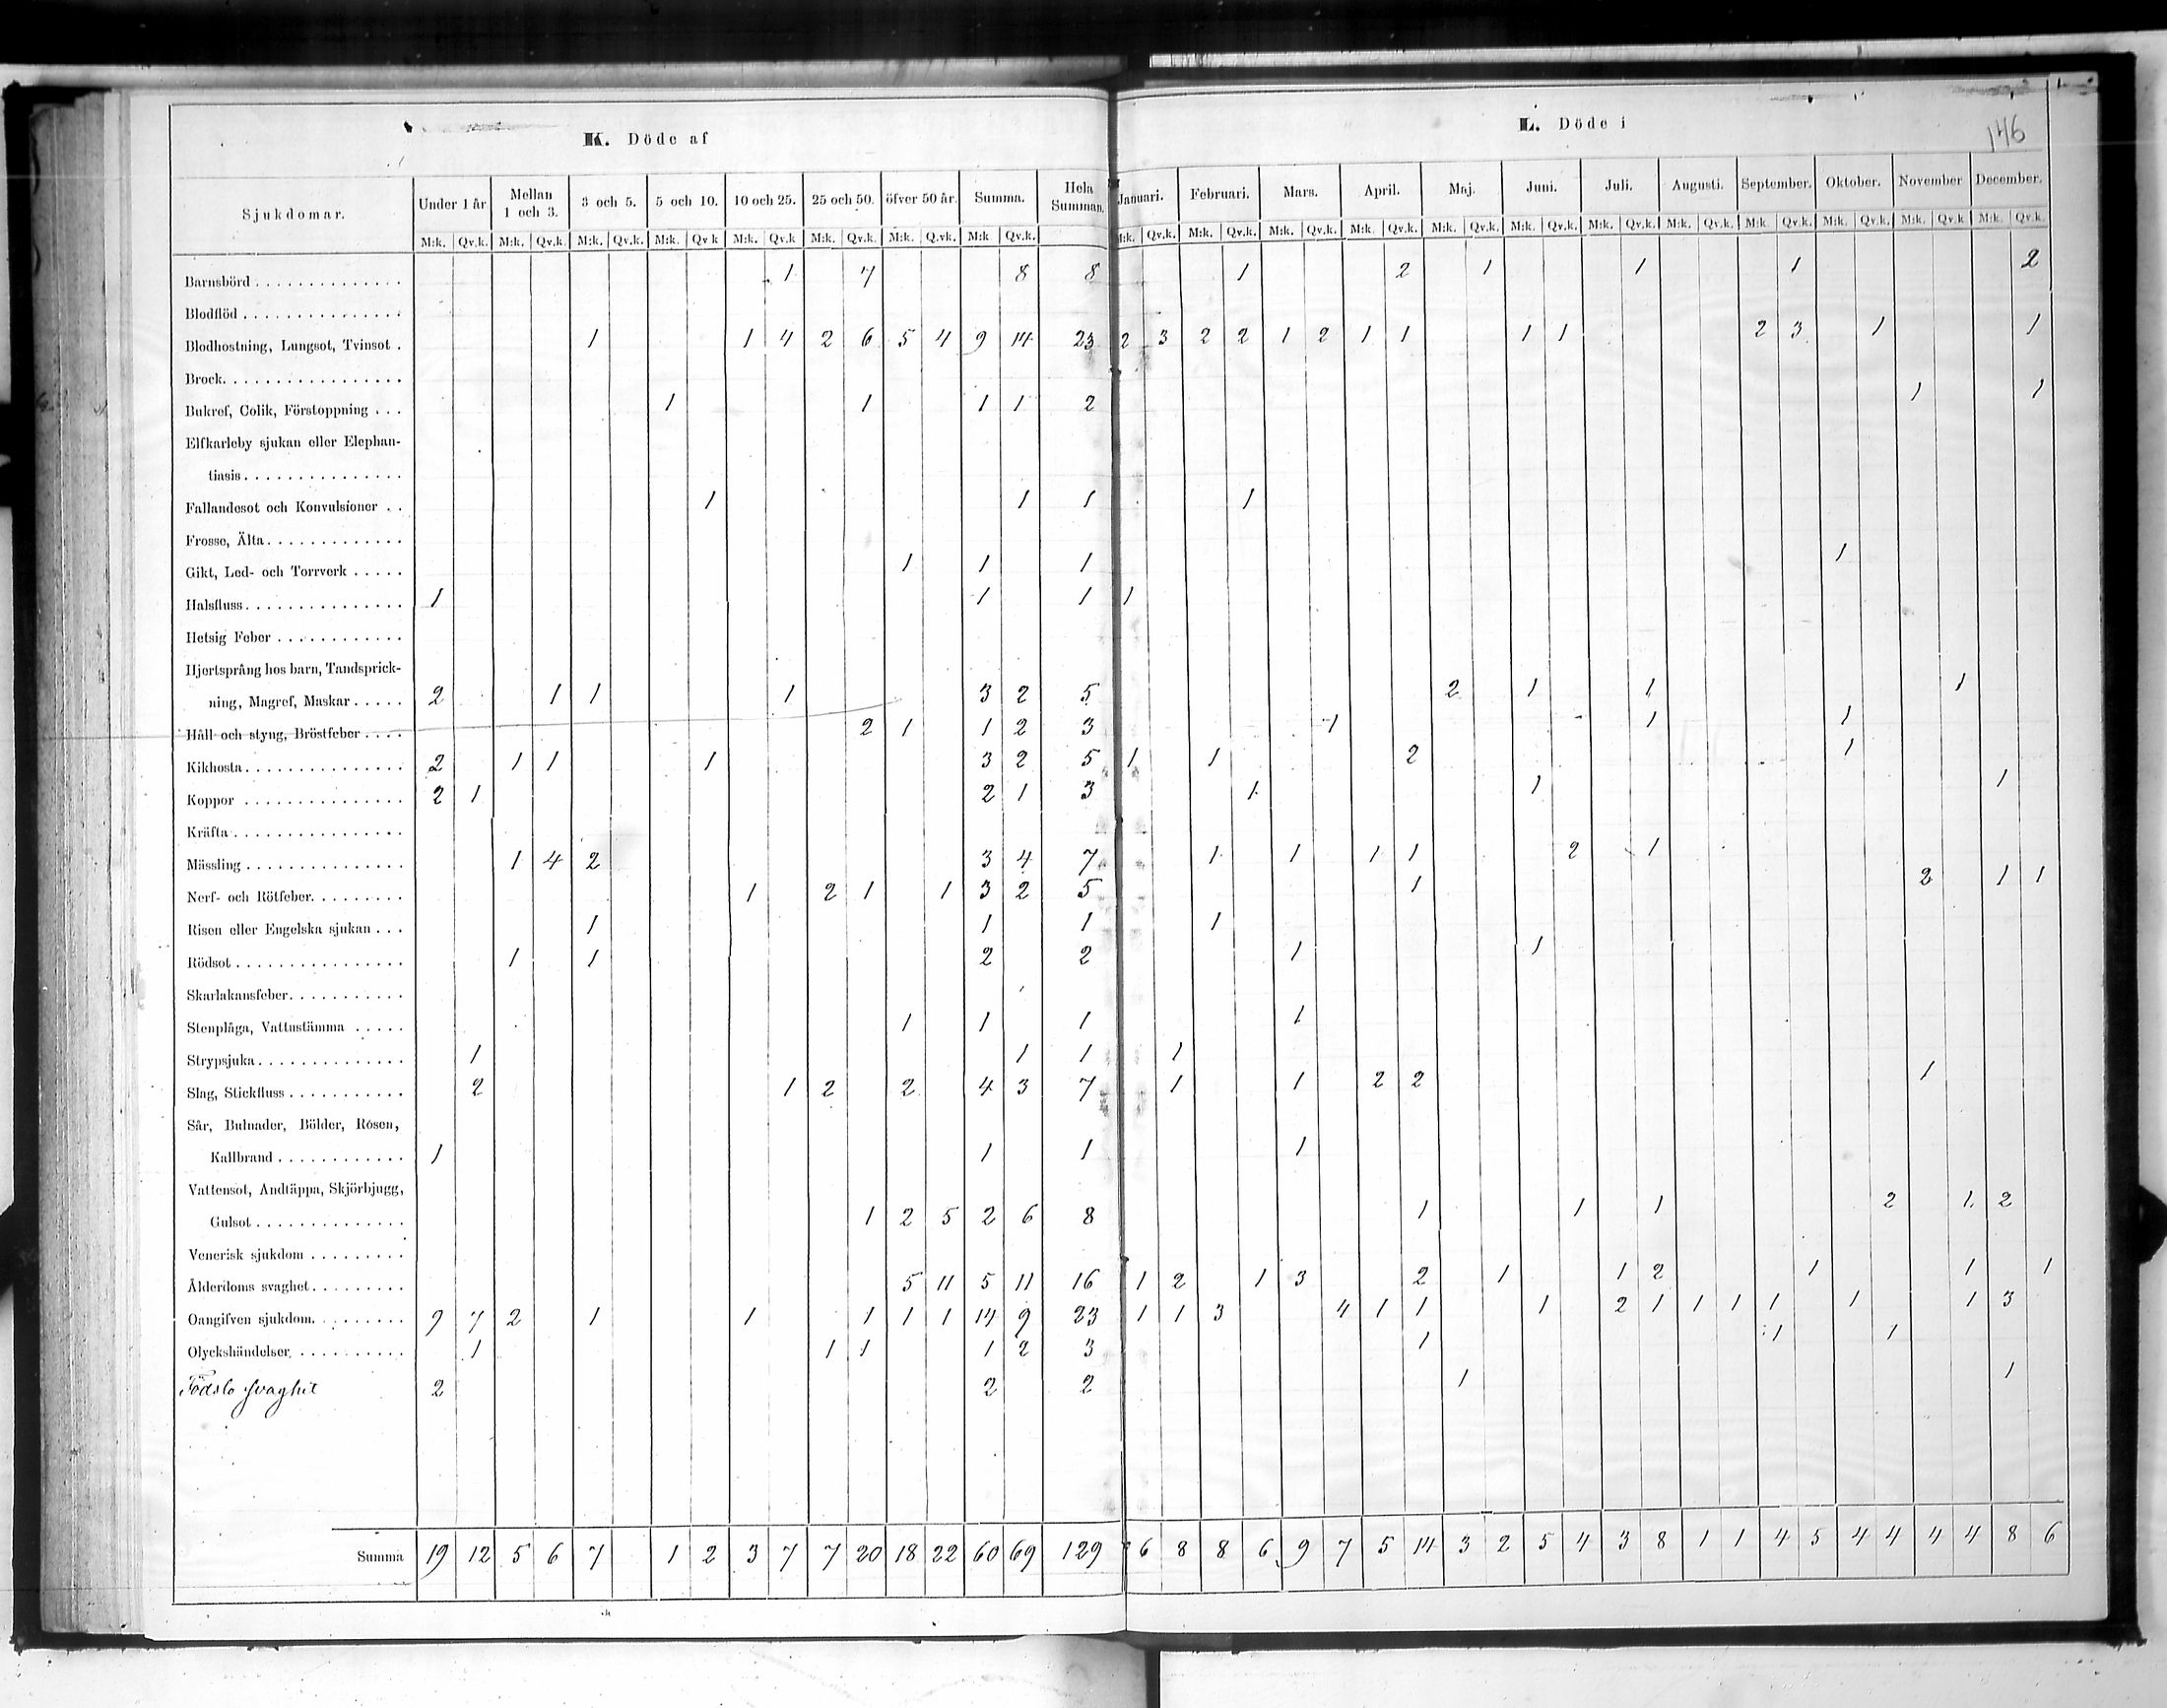 K. Döde af
L. Döde i
146
Sjukdomar. Under 1 år Mellan 1 och 3. 3 och 5. 5 och 10. 10 och 25. 25 och 50. öfver 50 år. Summa. Hela Summan. Januari. Februari. Mars. April. Maj. Juni. Juli. Augusti. September. Oktober. November December.
M:k. Qv.k. M:k. Qv.k. M:k. Qv.k. M:k. Qv k M:k. Qv k M:k. Qv.k. M:k. Q.vk. M:k Qv.k. M:k. Qv.k. M:k. Qv.k. M:k. Qv.k. M:k. Qv.k. M:k. Qv.k. M:k. Qv.k. M:k. Qv.k. M:k. Qv.k. M:k Qv.k. M:k. Qv.k. M:k. Qv.k M:k. Qv.k.
Barnsbörd 1 7 8 8 1 2 1 1 1 2
Blodflöd
Blodhostning, Lungsot, Tvinsot 1 1 4 2 6 5 4 9 14 23 2 3 2 2 1 2 1 1 1 1 2 3 1 1
Brock
Bukref, Colik, Förstoppning 1 1 1 1 2 1 1
Elfkarleby sjukan eller Elephan-
tiasis
Fallandesot och Konvulsioner 1 1 1 1
Frosse, Älta
Gikt, Led- och Torrverk 1 1 1 1
Halsfluss 1 1 1 1
Hetsig Feber
Hjertsprång hos barn, Tandsprick-
ning, Magref, Maskar 2 1 1 1 3 2 5 2 1 1 1
Håll och styng, Bröstfeber 2 1 1 2 3 1 1 1
Kikhosta 2 1 1 1 3 2 5 1 1 2 1
Koppor 2 1 2 1 3 1 1 1
Kräfta
Mässling 1 4 2 3 4 7 1 1 1 1 2 1
Nerf- och Rötfeber 1 2 1 1 3 2 5 1 2 1 1
Risen eller Engelska sjukan 1 1 1 1
Rödsot 1 1 2 2 1 1
Skarlakansfeber
Stenplåga, Vattustämma 1 1 1 1
Strypsjuka 1 1 1 1
Slag, Stickfluss 2 1 2 2 4 3 7 1 1 2 2 1
Sår, Bulnader, Bölder, Rosen,
Kallbrand 1 1 1 1
Vattensot, Andtäppa, Skjörbjugg,
Gulsot 1 2 5 2 6 8 1 1 1 2 1 2
Venerisk sjukdom
Ålderdoms svaghet 5 11 5 11 16 1 2 1 3 2 1 1 2 1 1 1
Oangifven sjukdom 9 7 2 1 1 1 1 1 14 9 23 1 1 3 4 1 1 1 2 1 1 1 1 1 1 3
Olyckshändelser 1 1 1 1 2 3 1 1 1
Födslo svaghet 2 2 2 1 1
Summa 19 12 5 6 7 1 2 3 7 7 20 18 22 60 69 129 6 8 8 6 9 7 5 14 3 2 5 4 3 8 1 1 4 5 4 4 4 4 8 6